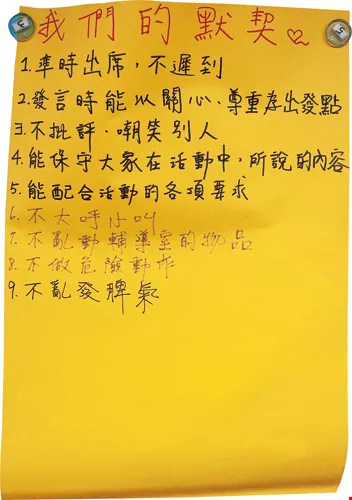 我們的默契
1. 準時出席，不遲到
2. 發言時能以關心、尊重為出發點
3. 不批評、嘲笑別人
4. 能保守大家在活動中，所說的內容
5. 能配合活動的各項要求
6. 不大呼小叫
7. 不亂動輔導室的物品
8. 不做危險動作
9. 不亂發脾氣